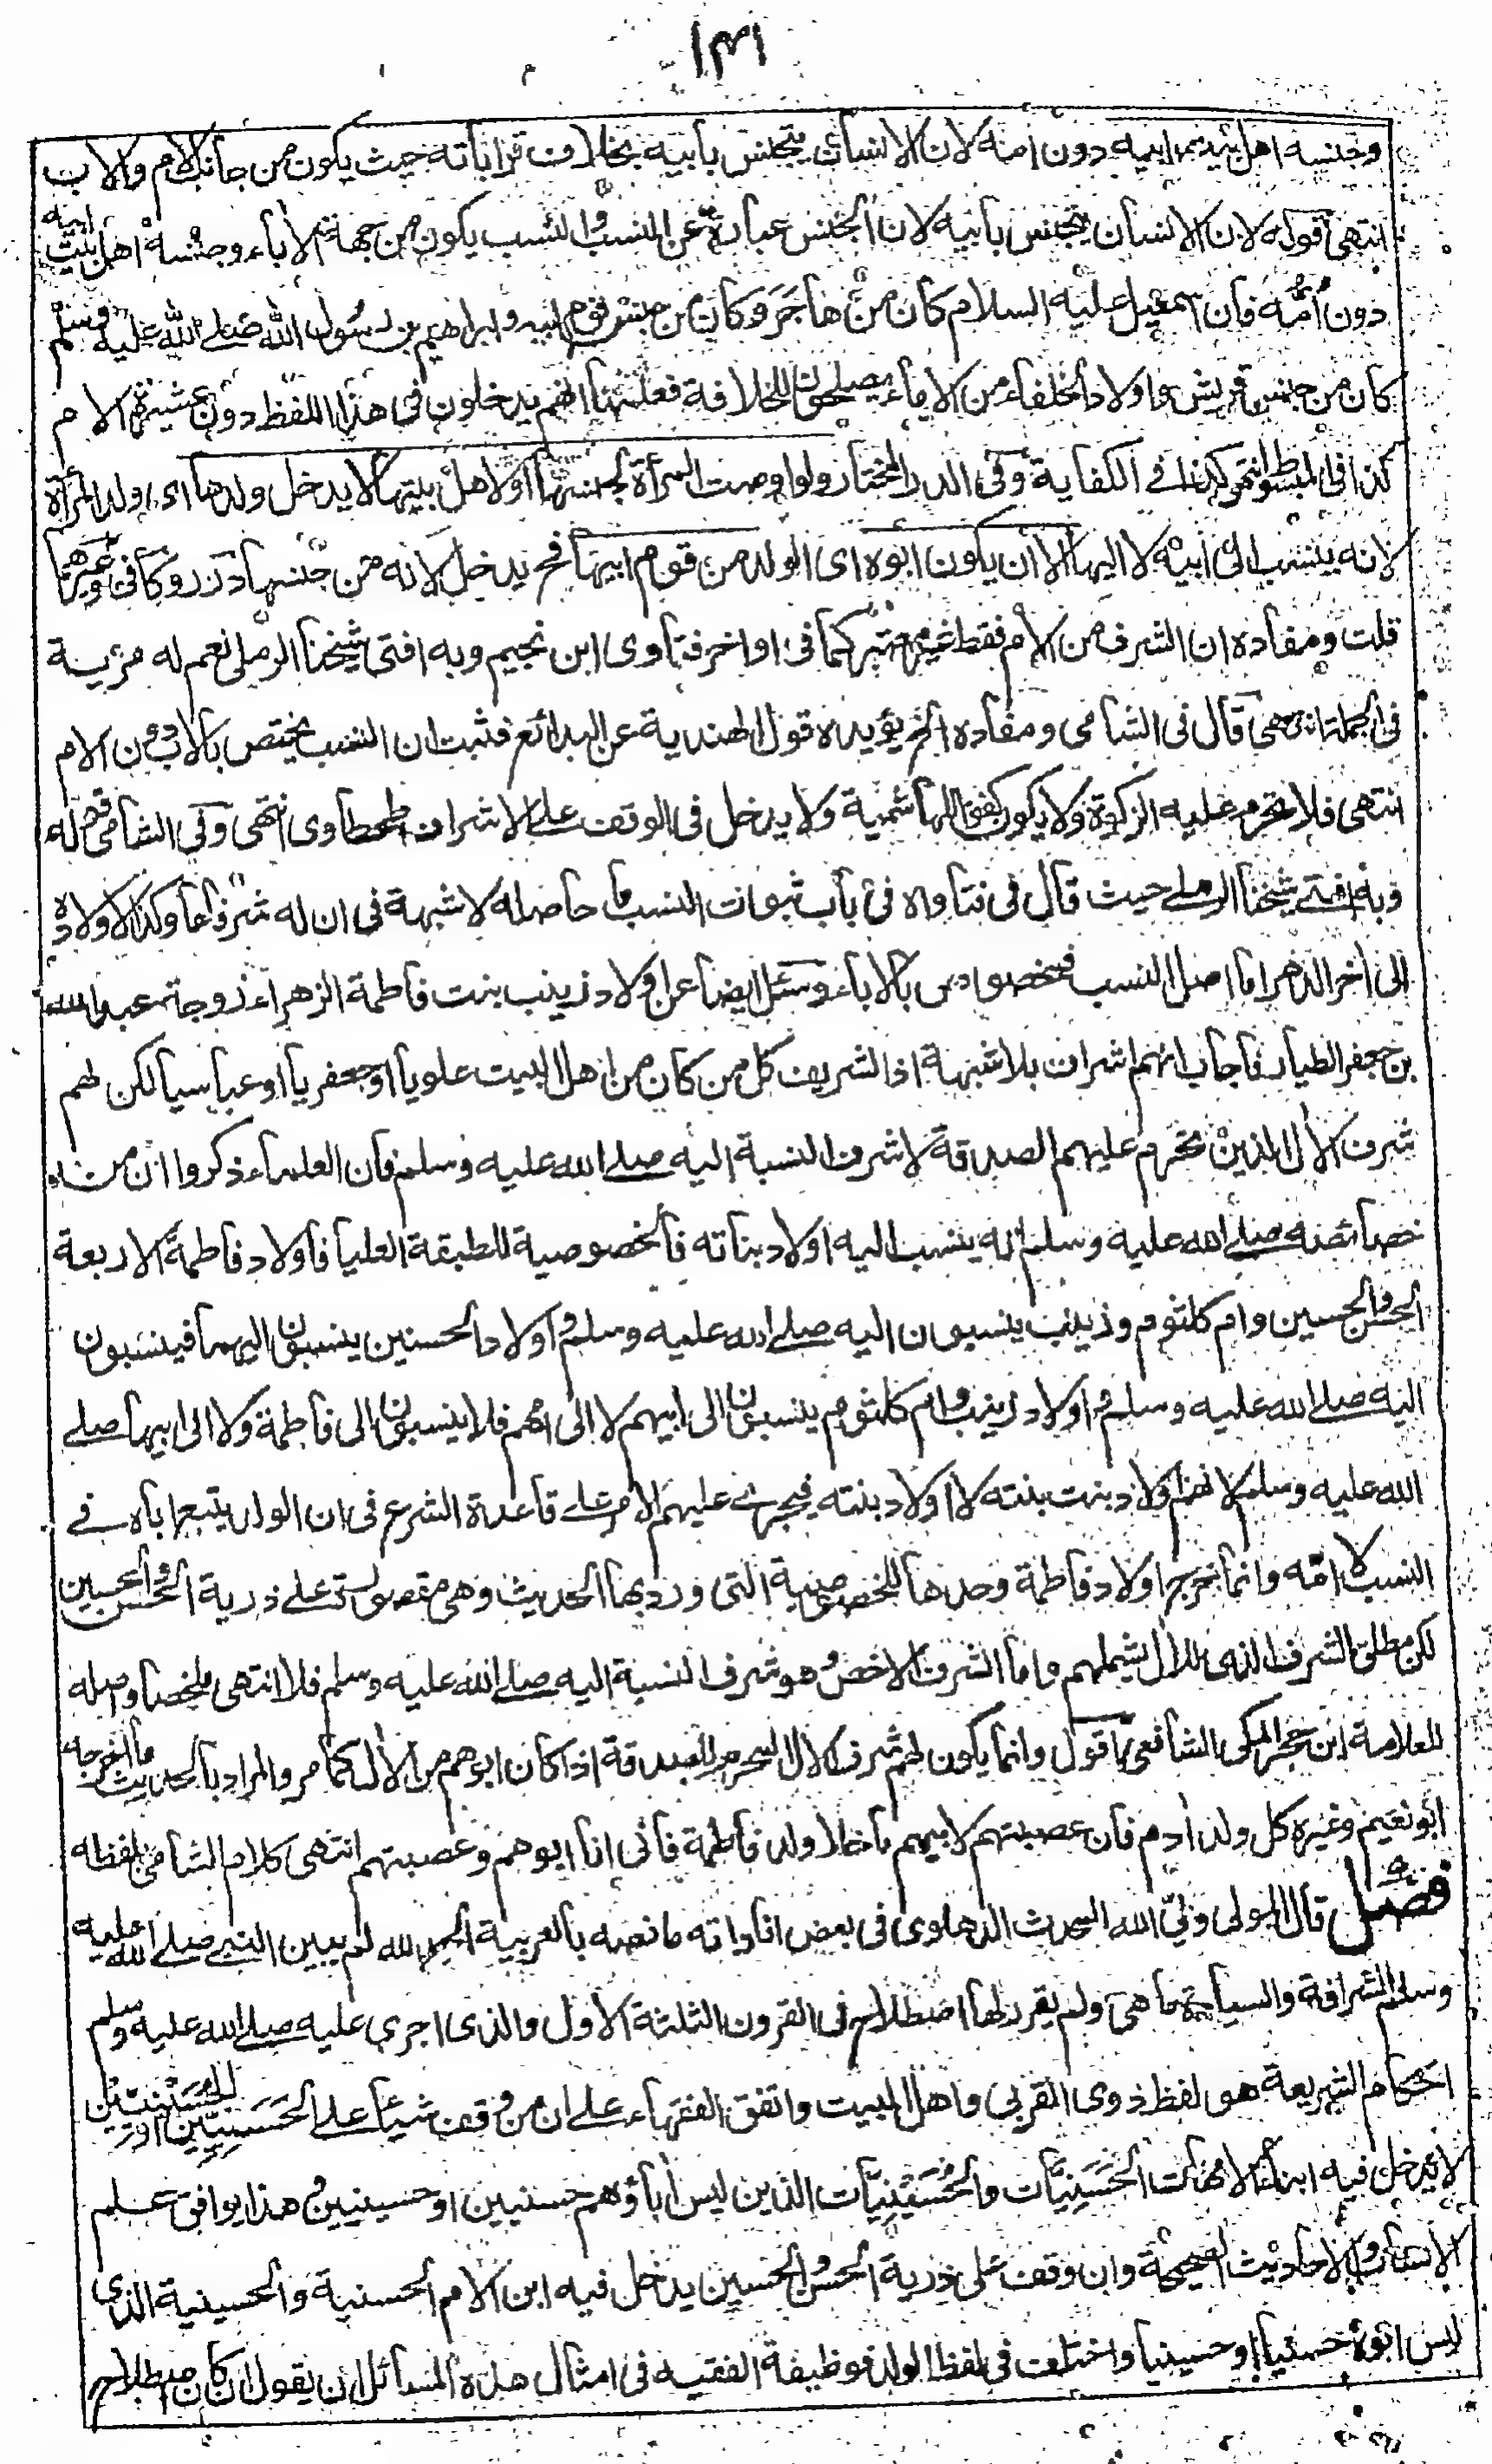 ١٣١
وجنسه اهل بيت ابيه دون امه لان الانسان يتجنس بابيه بخلاف قراباته حيث يكون من جانب الام والاب
انتهى قوله لان الانسان يتجنس بابيه لان الجنس عبارة عن النسب والنسب يكون من جهة الأباء وجنسه اهل بيت ابيه
دون أمّه فان اسمعيل عليه السلام كان من هاجَر وكان من جنس قوم ابيه وابراهيم بن رسول الله صلے الله عليه وسلم
كان من جنس قريش واولاد الخلفاء من الاماء يصلحون للخلافة فعلمنا انهم يدخلون فى هذا اللفظ دون عشيرة الام
كذا فى المبسوط انتهى كذا فے الكفاية وفى الدر المختار ولو اوصت المرأة لجنسها اولاهل بيتها لا يدخل ولدها اى ولد المرأة
لانه ينسب الى ابيه لا اليها الا ان يكون ابوه اى الولد من قوم ابيها فح يدخل لانه من جنسها درر وكافى وغيرهما
قلت ومفاده ان الشرف من الام فقط غير معتبر كما فى اواخر فتاوى ابن نجيم وبه افتى شيخنا الرملى نعم له مزية
فى الجملة انتهى قال فى الشامى ومفاده الخ يؤيده قول الهندية عن البدائع فثبت ان النسب يختص بالاب دون الام
انتهى فلا تحرم عليه الزكوة ولا يكون كفوا لهاشمية ولا يدخل فى الوقف علے الاشراف طحطاوى انتهى وفى الشامى قوله
وبه افتے شيخنا الرملے حيث قال فى فتاواه فى باب ثبوت النسب ما حاصله لا شبهة فى ان له شرفاما وكذا لاولاده
الى أخر الدهر اما اصل النسب فمخصوص بالاباء وسئل ايضا عن اولاد زينب بنت فاطمة الزهراء زوجة عبد الله
بن جعفر الطيار فاجاب انهم اشراف بلا شبهة اذ الشريف كل من كان من اهل البيت علويا او جعفريا او عباسيا لكن لهم
شرف الأل الذين تحرم عليهم الصدقة لا شرف النسبة اليه صلے الله عليه وسلم فان العلماء ذكروا ان من
خصائصه صلے الله عليه وسلم انه ينسب اليه اولاد بناته فالخصوصية للطبقة العليا فاولاد فاطمة الاربعة
الحسن والحسين وام كلثوم وزينب ينسبون اليه صلے الله عليه وسلم واولاد الحسنين ينسبون اليهما فينسبون
اليه صلے الله عليه وسلم واولاد زينب وام كلثوم ينسبون الى ابيهم لا الى امهم فلا ينسبون الى فاطمة ولا الى ابيها صلے
الله عليه وسلم لانهم اولاد بنت بنته لا اولاد بنته فيجرى عليهم الامر علے قاعدة الشرع فى ان الولد يتبع اباه فے
النسب لا امّه وانما خرج اولاد فاطمة وحدها للخصوصية التى ورد بها الحديث وهى مقصورة علے ذرية الحسن والحسين
لكن مطلق الشرف الذى للأل يشملهم واما الشرف الاخص وهو شرف النسبة اليه صلے الله عليه وسلم فلا انتهى ملخصا واصله
للعلامة ابن حجر المكى الشافعى اقول وانما يكون لهم شرف الأل المحرم للصدقة اذا كان ابوهم من الأل كما مر والمراد بالحديث ما اخرجه
ابو نعيم وغيره كل ولد أدم فان عصبتهم لابيهم ما خلا ولد فاطمة فانى انا ابوهم وعصبتهم انتهى كلام الشامى بلفظه
فصل قال المولى ولىّ الله المحدث الدهلوى فى بعض افاداته ما نصه بالعربية الحمد لله لم يبين النبے صلے الله عليه
وسلم الشرافة والسيادة ما هى ولم يقرر لها اصطلاح فى القرون الثلثة الأول والذى اجرى عليه صلے الله عليه وسلم
احكام الشريعة هو لفظ ذوى القربى واهل البيت واتفق الفقهاء علے ان من وقف شيئا علے الحَسَنيين او الحُسَينيين
لا يدخل فيه ابناء الامهات الحَسَنيّات والحُسَينيّات الذين ليس أباؤهم حسنيين او حسينيين وهذا يوافق علم
الانساب والاحاديث الصحيحة وان وقف على ذرية الحسن والحسين يدخل فيه ابن الام الحسنية والحسينية الذى
ليس ابوه حسنيا او حسينيا واختلف فى لفظ الولد فوظيفة الفقيه فى امثال هذه المسائل ان يقول ان كان اصطلاح